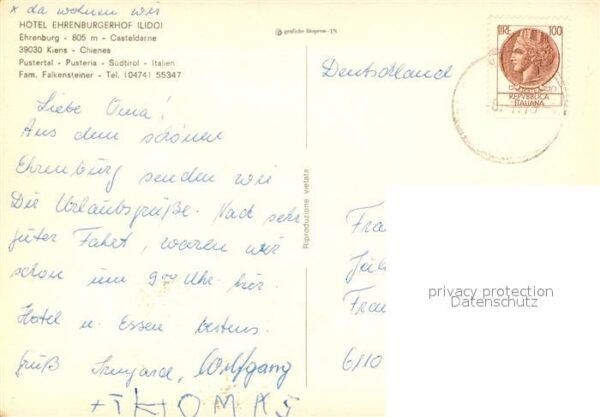 x da wohnen wir
HOTEL EHRENBURGERHOF (LIDO)
Ehrenburg - 805 m - Casteldarne
39030 Kiens - Chienes
Pustertal - Pusteria - Südtirol - Italien
Fam. Falkensteiner - Tel. (0474) 55347
Liebe Oma!
Aus dem schönen
Ehrenburg senden wir
Dir Urlaubsgrüße. Nach sehr
guter Fahrt, waren wir
schon um 9⁰⁰ Uhr hier.
Hotel u. Essen bestens.
Gruß Irmgard, Wolfgang
+ THOMAS
grafiche Biopres-TN
Riproduzione vietata
LIRE 100
REPVBBLICA
ITALIANA
Deutschland
Fra
Jul
Fran
6110
privacy protection
Datenschutz